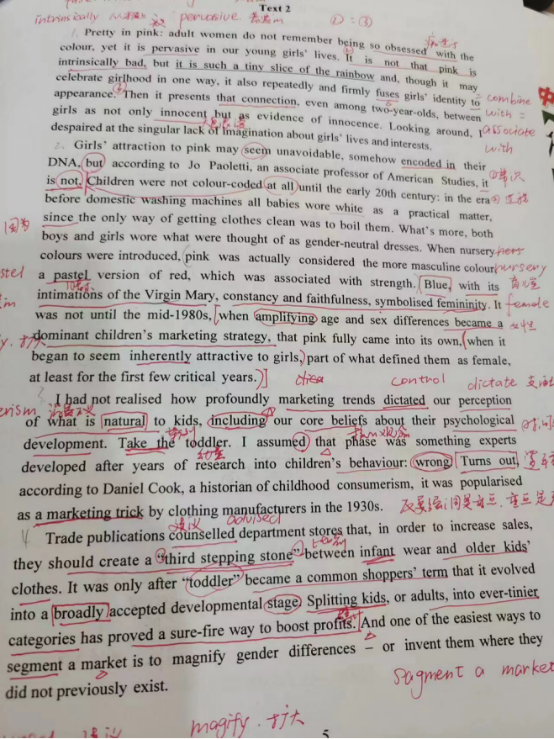 Text 2
intrinsically
pervasive
Pretty in pink: adult women do not remember being so obsessed with the
colour, yet it is pervasive in our young girls' lives. It is not that pink is
intrinsically bad, but it is such a tiny slice of the rainbow and, though it may
celebrate girlhood in one way, it also repeatedly and firmly fuses girls' identity to
appearance. Then it presents that connection, even among two-year-olds, between
girls as not only innocent but as evidence of innocence. Looking around, I
despaired at the singular lack of imagination about girls' lives and interests.
combine
with =
associate
with
Girls' attraction to pink may seem unavoidable, somehow encoded in their
DNA, but according to Jo Paoletti, an associate professor of American Studies, it
is not. Children were not colour-coded at all until the early 20th century: in the era
before domestic washing machines all babies wore white as a practical matter,
since the only way of getting clothes clean was to boil them. What's more, both
boys and girls wore what were thought of as gender-neutral dresses. When nursery
colours were introduced, pink was actually considered the more masculine colour,
a pastel version of red, which was associated with strength. Blue, with its
intimations of the Virgin Mary, constancy and faithfulness, symbolised femininity. It
was not until the mid-1980s, when amplifying age and sex differences became a
dominant children's marketing strategy, that pink fully came into its own, when it
began to seem inherently attractive to girls, part of what defined them as female,
at least for the first few critical years.
因为
nursery
female
control
dictate
I had not realised how profoundly marketing trends dictated our perception
of what is natural to kids, including our core beliefs about their psychological
development. Take the toddler. I assumed that phase was something experts
developed after years of research into children's behaviour: wrong. Turns out,
according to Daniel Cook, a historian of childhood consumerism, it was popularised
as a marketing trick by clothing manufacturers in the 1930s.
advised
Trade publications counselled department stores that, in order to increase sales,
they should create a "third stepping stone" between infant wear and older kids'
clothes. It was only after "toddler" became a common shoppers' term that it evolved
into a broadly accepted developmental stage. Splitting kids, or adults, into ever-tinier
categories has proved a sure-fire way to boost profits. And one of the easiest ways to
segment a market is to magnify gender differences – or invent them where they
did not previously exist.
Sagment a market
magify. 扩大
5